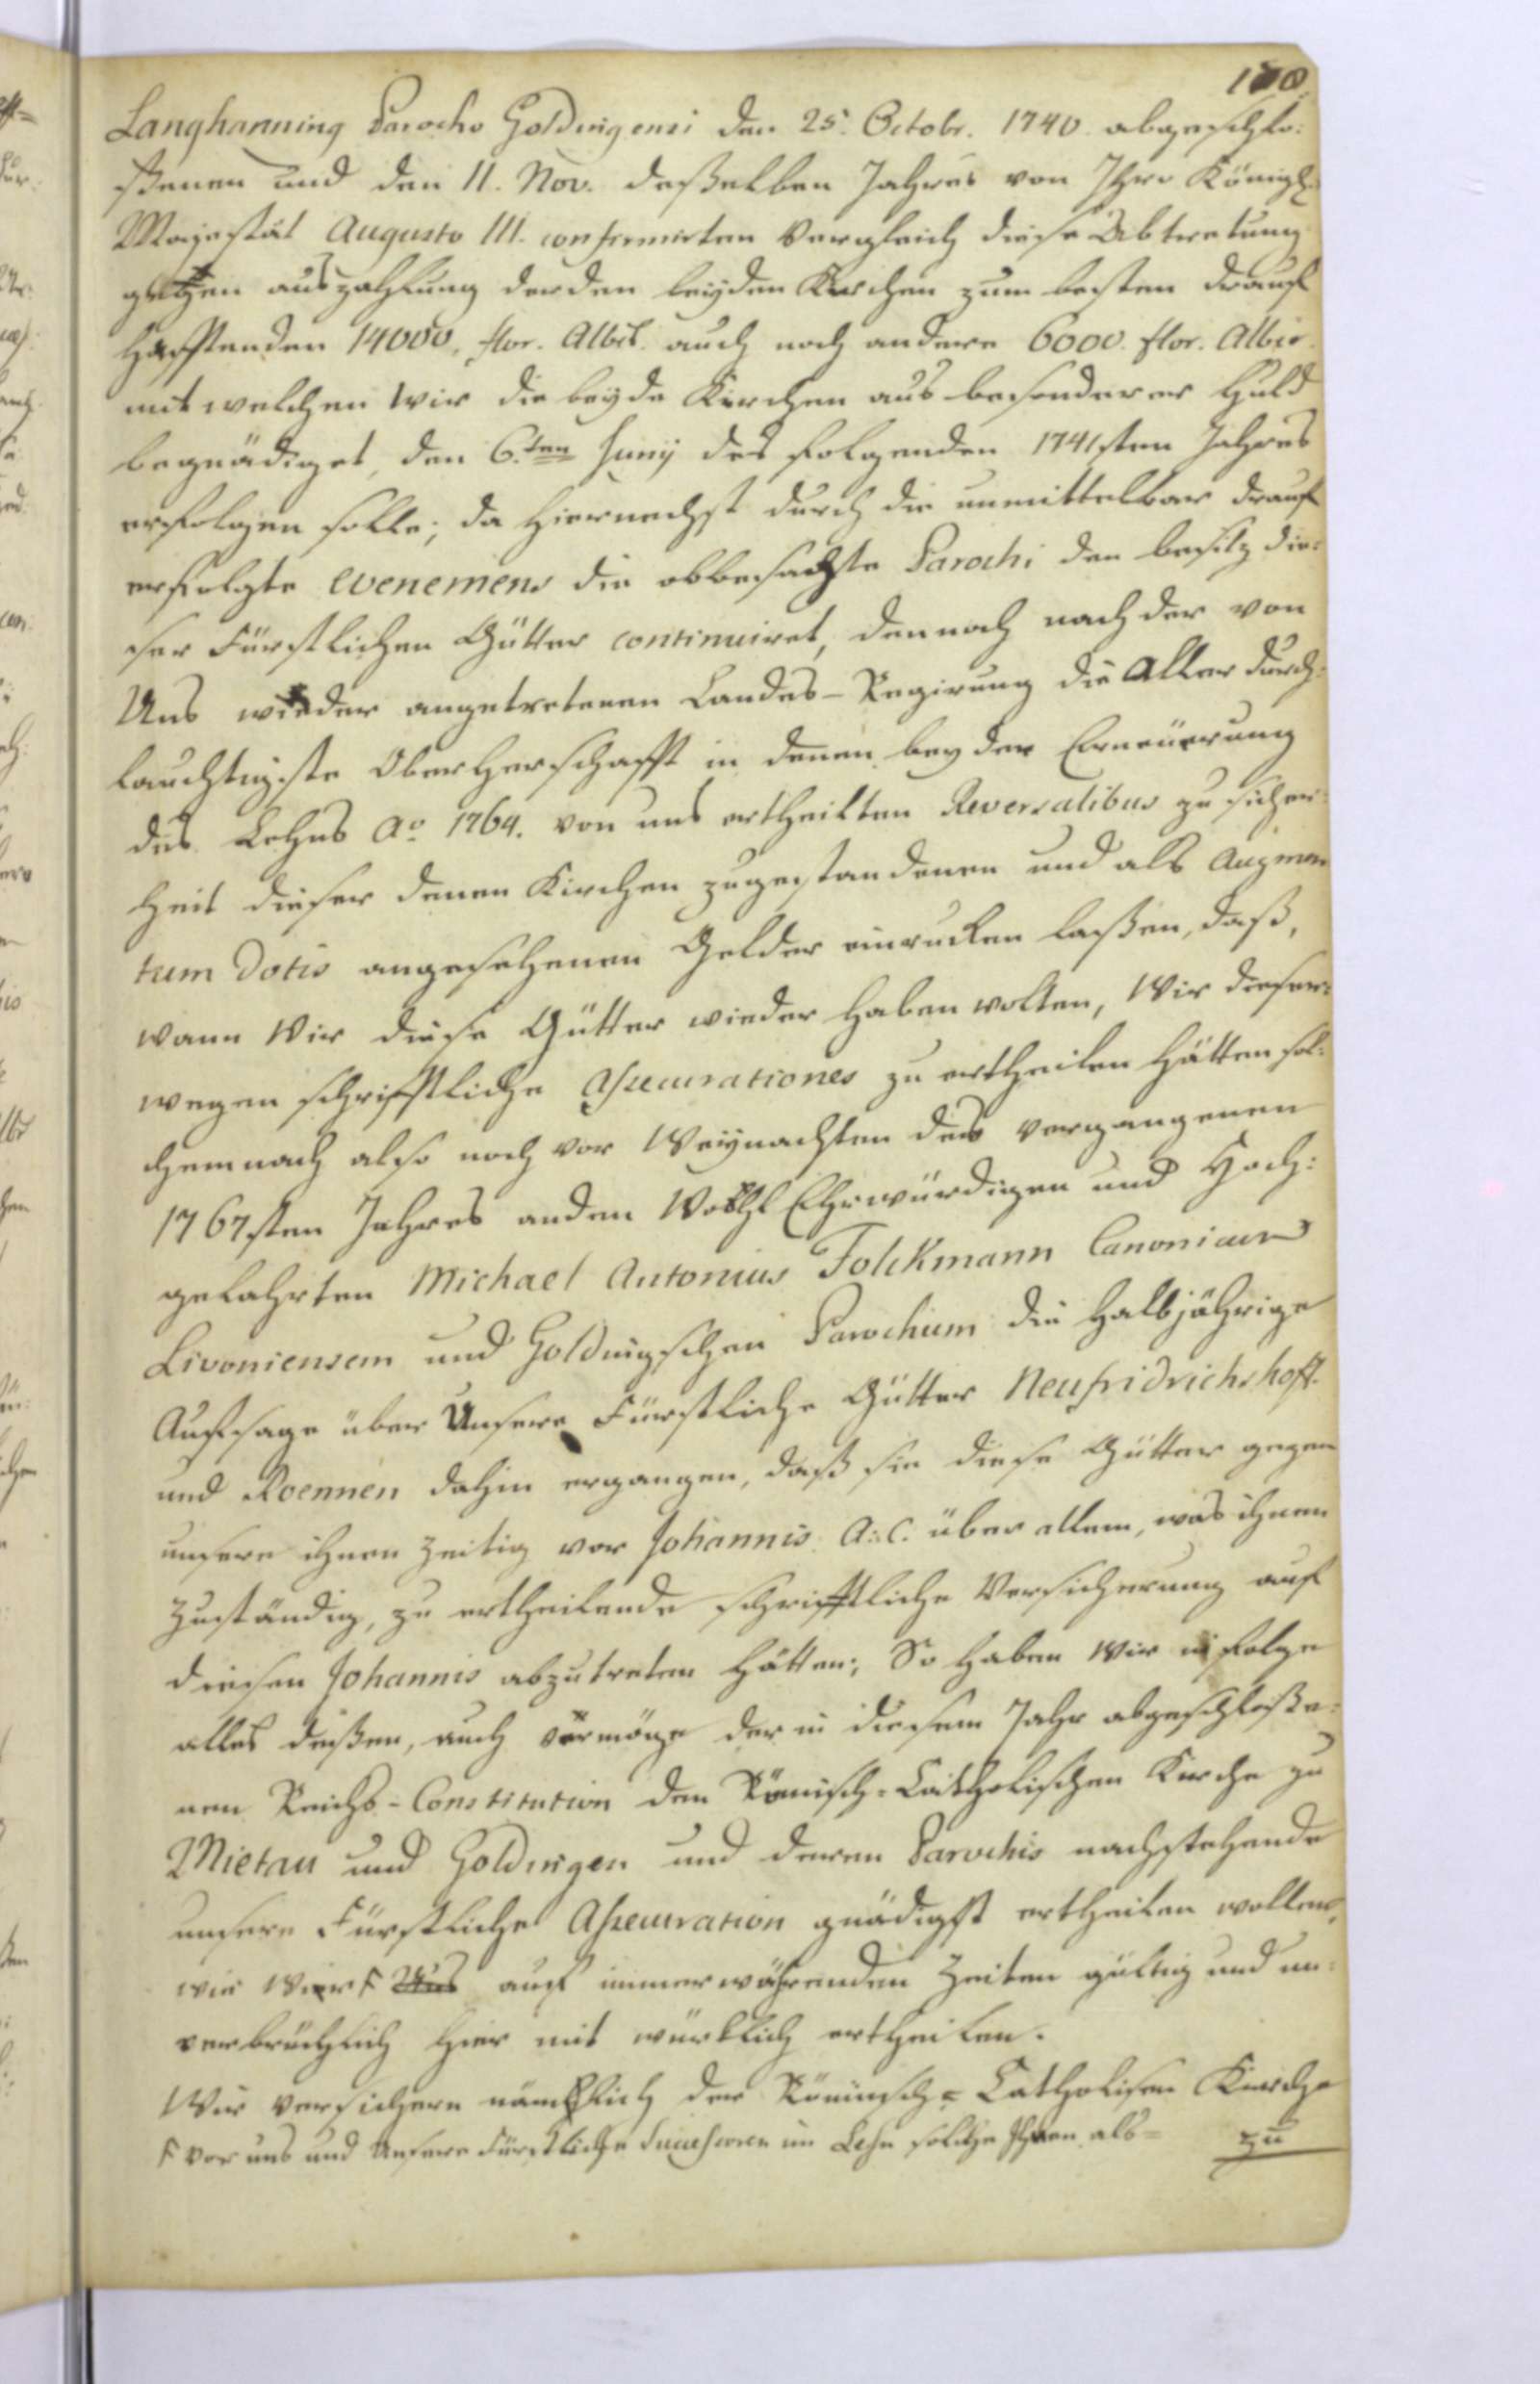 100
Langhanning Parocho Goldingensi den 25. Octobr. 1740. abgeschlo:
ßenen und den 11. Nov. deßelben Jahres von Ihro Königl.
Majestät Augusto III. confirmirten Vergleich diese Abtretung
gegen auszahlung der den beyden Kirchen zum besten drauf
hafftenden 14000, flor. Albts. auch noch andere 6000. flor. Alber.
mit welchen Wir die beyde Kirchen aus besonderer Huld
begnädiget, den 6.ten Juny des folgenden 1741sten Jahres
erfolgen solle; da hiernechst durch die unmittelbar drauf
erfolgte evenemens die obbesachte Parochi den besitz die:
ser Fürstlichen Gütter continuiret, dennoch nach der von
Uns wieder angetretenen Landes-Regirung die Aller durch:
lauchtigste Oberherschafft in denen bey der Erneüerung
des Lehns Ao 1764. von uns ertheilten Reversalibus zu sicher:
heit dieser denen Kirchen zugestandenen und als Augmen
tum Dotis angesehenen Gelder einrucken laßen, daß,
wann Wir diese Gütter wieder haben wolten, Wir dieser:
wegen schrifftliche Assecurationes zu ertheilen hätten sol:
chemnach also noch vor Weynachten des vergangenen
1767sten Jahres an den Wohl Ehrwürdigen und Hoch:
gelahrten Michael Antonius Folckmann Canonicum
Livoniensem und Goldingschen Parochum die halbjährige
Aufsage über Unsere Fürstliche Gütter Neufridrichshoff.
und Roennen dahin ergangen, daß sie diese Gütter gegen
unsere ihnen zeitig vor Johannis A: C. über allem, was ihnen
zuständig, zu ertheilende schrifftliche Versicherung auf
diesen Johannis abzutreten hätten; So haben Wir in folge
alles deßen, auch vermöge der in diesem Jahr abgeschloße:
nen Reichs-Constitution den Römisch-Catholischen Kirche zu
Mietau und Goldingen und deren Parochis nachstehende
unsere Fürstliche Assecuration gnädigst ertheilen wollen,
wie Wir F Uns auf immerwährenden Zeiten gültig und un:
verbrüchlich hier mit würklich ertheilen.
Wir versichern nämlich der Römisch-Catholisen Kirche
F vor uns und Unsere Fürstliche Successoren im Lehn solche Ihnen als= zu